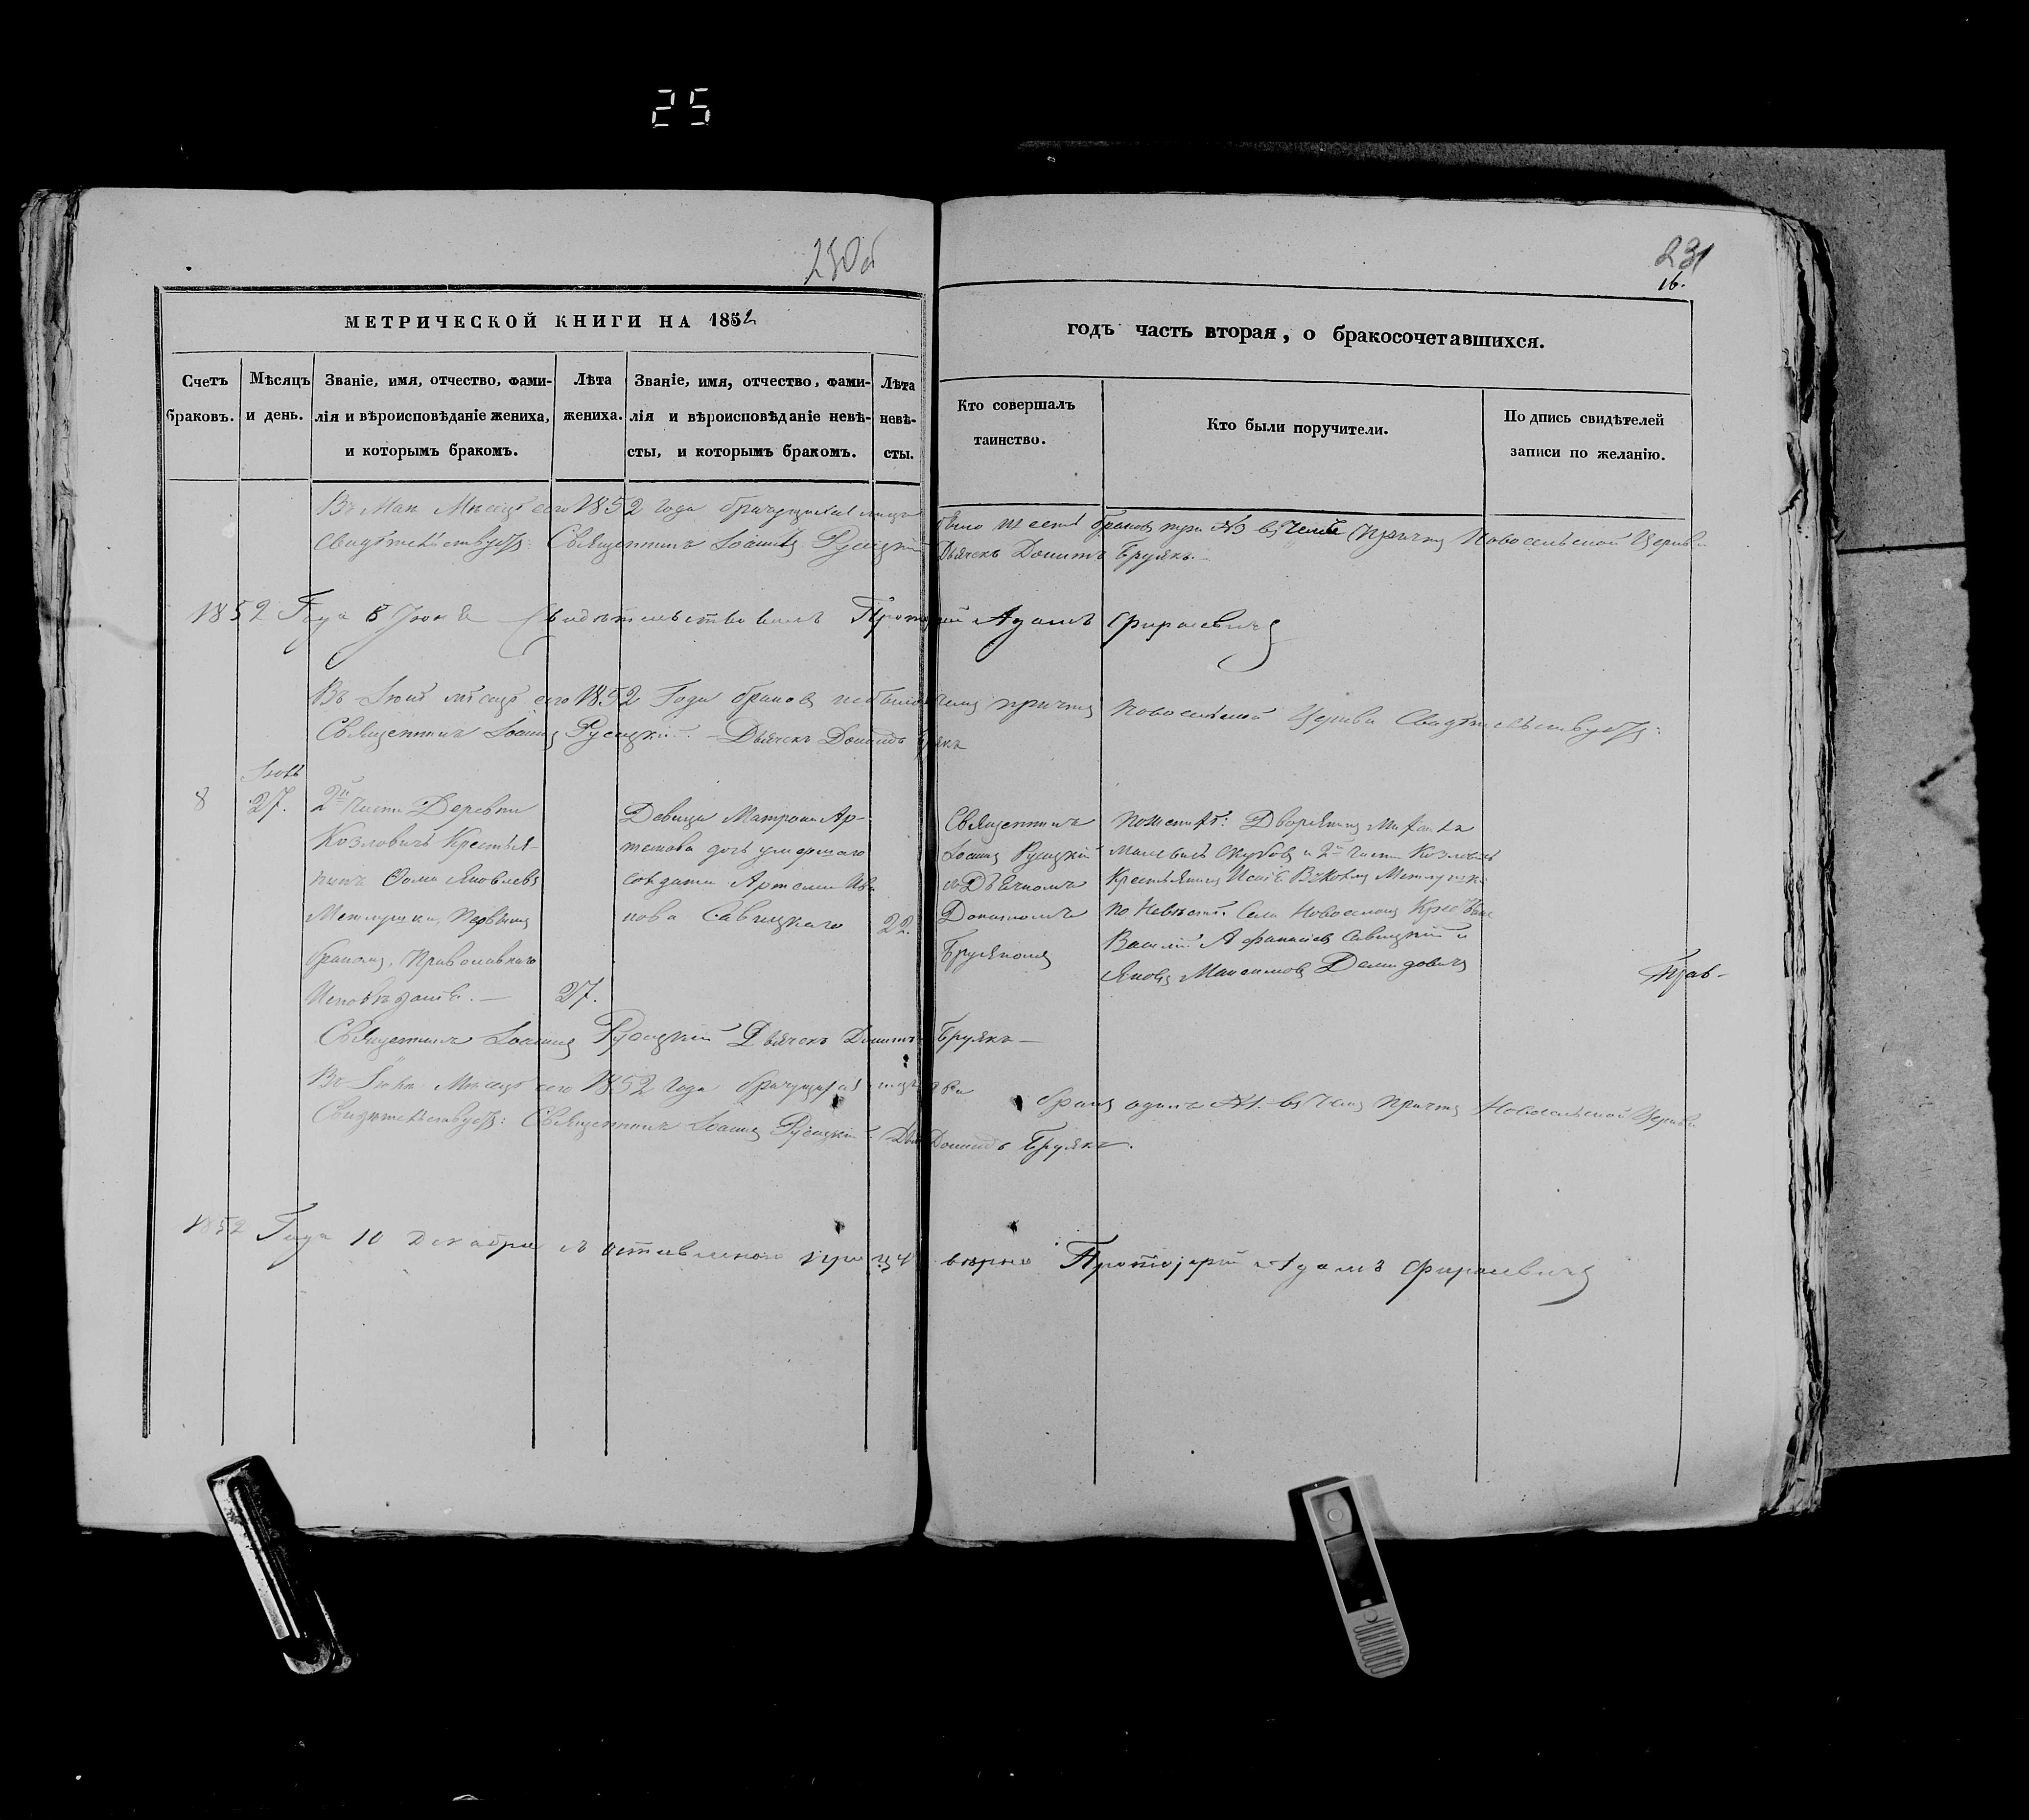 25
230об
231
16.
МЕТРИЧЕСКОЙ КНИГИ НА 1852
годъ часть вторая, о бракосочетавшихся.
Счетъ браковъ.
Мѣсяцъ и день.
Званіе, имя, отчество, фами-
лія и вѣроисповѣданіе жениха,
и которымъ бракомъ.
Лѣта
жениха.
Званіе, имя, отчество, фами-
лія и вѣроисповѣданіе невѣ-
сты, и которымъ бракомъ.
Лѣта
невѣ-
сты.
Кто совершалъ
таинство.
Кто были поручители.
Подпись свидѣтелей
записи по желанію.
Въ Маи Мѣсяцѣ сего 1852 года
три №3 въ чемъ Причтъ Новосельской Церкви
Свидѣтельствуетъ: Священникъ Іоаннъ Русецкій
Дьячекъ Донатъ Брулякъ.
1852 Года 8 Свидѣтельствовалъ Адамъ
Въ мѣсяцѣ сего 1852 Года браковъ небыло чемъ причтъ Новосельской Церкви Свидѣтельствуетъ:
Священникъ Іоаннъ Русецкій. Дьячекъ Донатъ
8
27.
2й части Деревни
Козловичъ Крестья-
нинъ Ѳома Яковлевъ
Метлушко, Первымъ
бракомъ, Православнаго
Исповѣданія.
27.
Девица Матрона Ар-
темова дочь умершаго
солдата Артема Ива
нова Савицкаго
22.
Священникъ
Іоаннъ Русецкій
съ Дьячкомъ
Донатомъ
Брулякомъ
По женихѣ: Дворянинъ
и 2й части Козловичъ
Крестьянинъ
По Невѣстѣ: Села Новоселокъ Крестьяне
Василій Афанасіевъ Савицкій и
Яковъ Максимовъ Демидовичъ
Прав-
Священникъ Іоаннъ Русецкій Дьячекъ Донатъ Брулякъ
Въ Мѣсяцѣ сего 1852 Года
бракъ одинъ №1. въ чемъ Причтъ Новосельской Церкви
Свидѣтельствуетъ: Священникъ Іоаннъ Русецкій Донатъ Брулякъ.
1852 Года 10 Декабря съ оставленною при вѣрно Протоіерей Адамъ